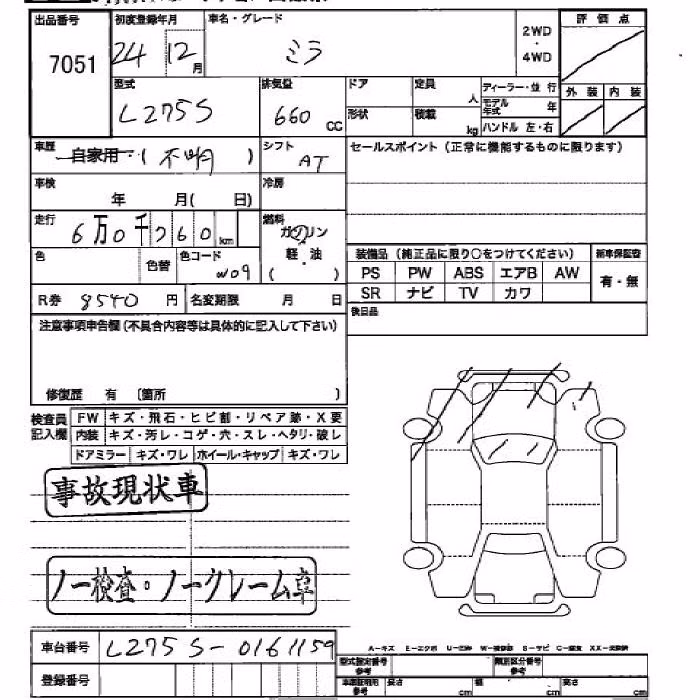 出品番号 初度登録年月 車名・グレード 評価点
7051 24 12月 ミラ 2WD・4WD
型式 排気量 ドア 定員 人 ディーラー・並行 外装 内装
L275S 660 CC 形状 積載 kg モデル年式 年
ハンドル 左・右
車歴 自家用・(不明) シフト AT セールスポイント（正常に機能するものに限ります）
車検 年 月( 日) 冷房
走行 6万0千760km 燃料 ガソリン
軽・油
( )
色 色替 色コード W09 装備品（純正品に限り○をつけてください） 新車保証書
PS PW ABS エアB AW 有・無
R券 8540 円 名変期限 月 日 SR ナビ TV カワ
注意事項申告欄(不具合内容等は具体的に記入して下さい) 後日品
修復歴 有 〔箇所 〕
検査員記入欄 FW キズ・飛石・ヒビ割・リペア跡・X要
内装 キズ・汚レ・コゲ・穴・スレ・ヘタリ・破レ
ドアミラー キズ・ワレ ホイール・キャップ キズ・ワレ
事故現状車
ノー検査・ノークレーム車
車台番号 L275S-0161159 A-キズ E-エクボ U-凹み W-補修跡 S-サビ C-腐食 XX-交換済
型式指定番号 参考 類別区分番号 参考
登録番号 車庫証明用 参考 長さ cm 幅 cm 高さ cm